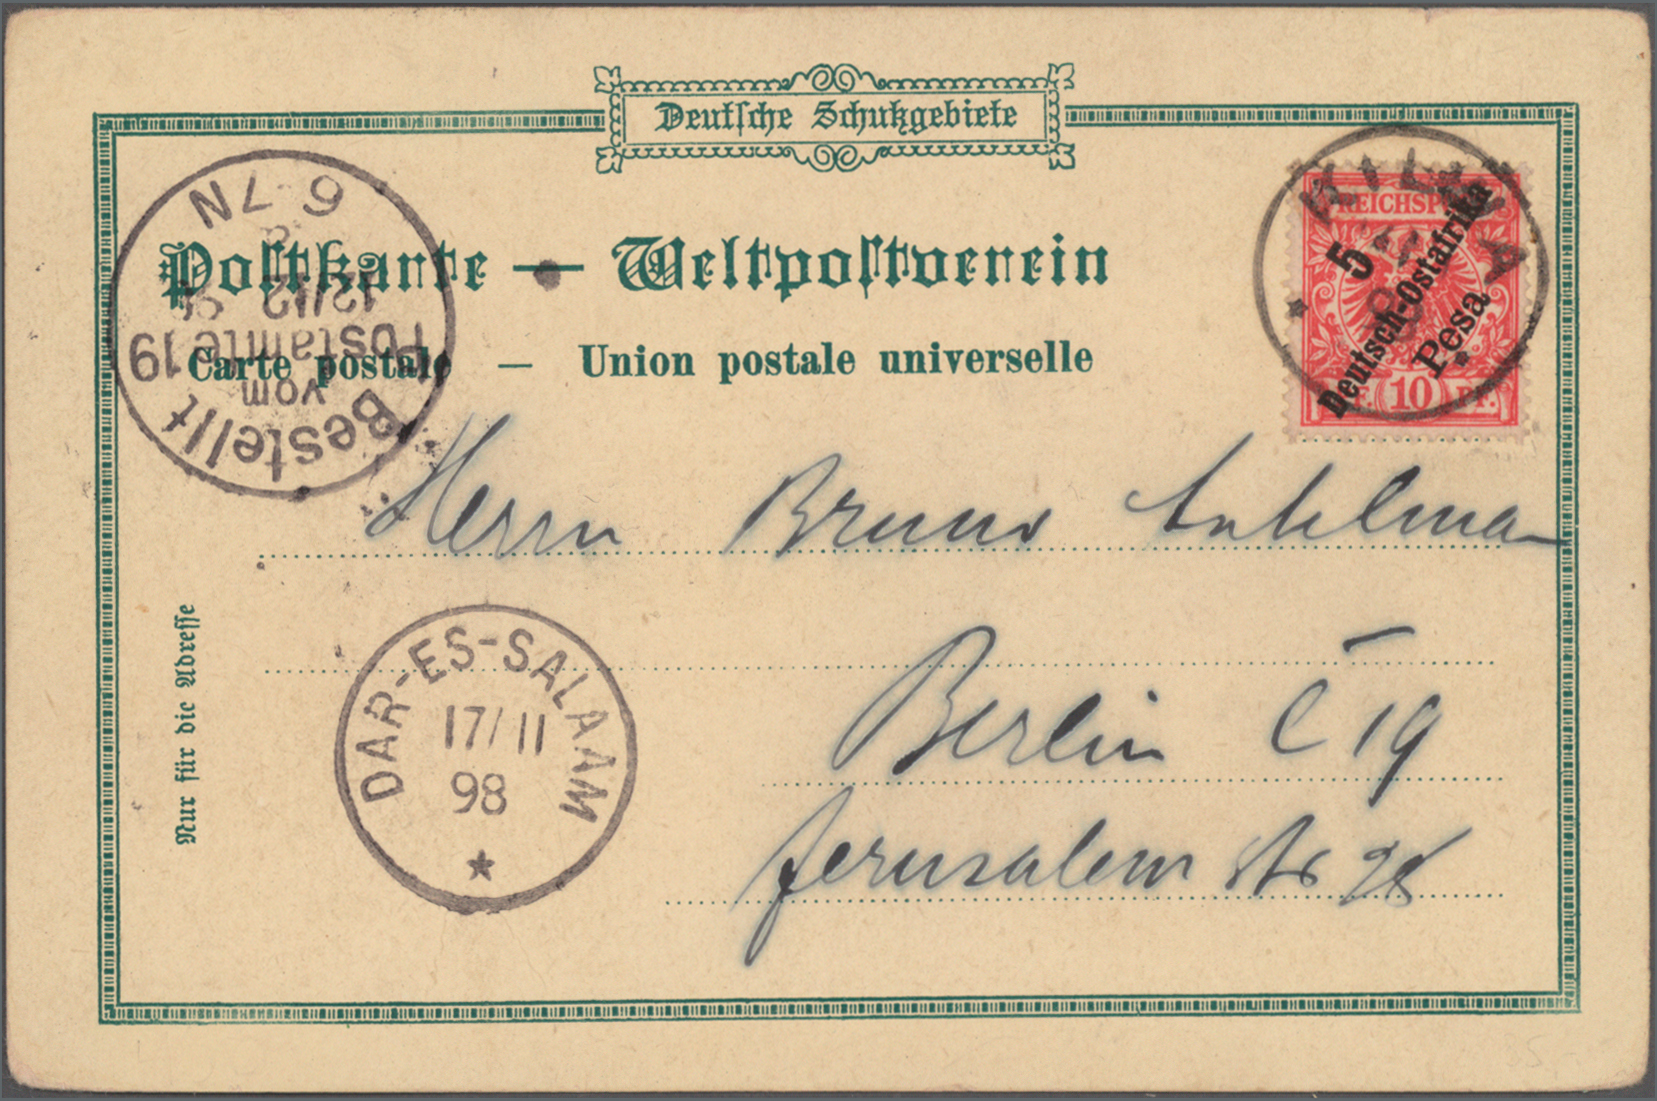 Deutsche Schutzgebiete
Postkarte — Weltpostverein
Carte postale — Union postale universelle
Nur für die Adresse
REICHSPOST
5
Deutsch-Ostafrika
Pesa
10 PF.
KILWA
Bestellt
vom
Postamte 19
12/12
98
6-7N
Herrn Bruno
Berlin C 19
Jerusalem Str 28
DAR-ES-SALAAM
17/11
98